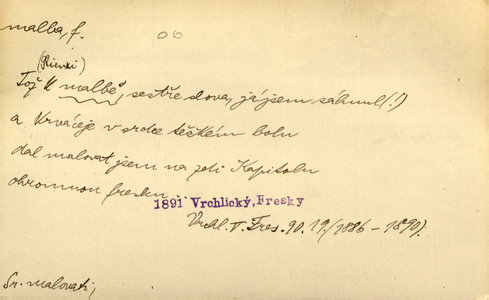 malba, f. 06
(Rienzi)
Tož k malbě, sestře slova, já jsem sáhnul (!)
a krváceje v srdce těžkém bolu
dal malovat jsem na zdi Kapitolu
ohromnou fresku.
1891 Vrchlický, Fresky
Vrchl. V. Fres. 90. 19/(1886–1890).
Sr. malovati;